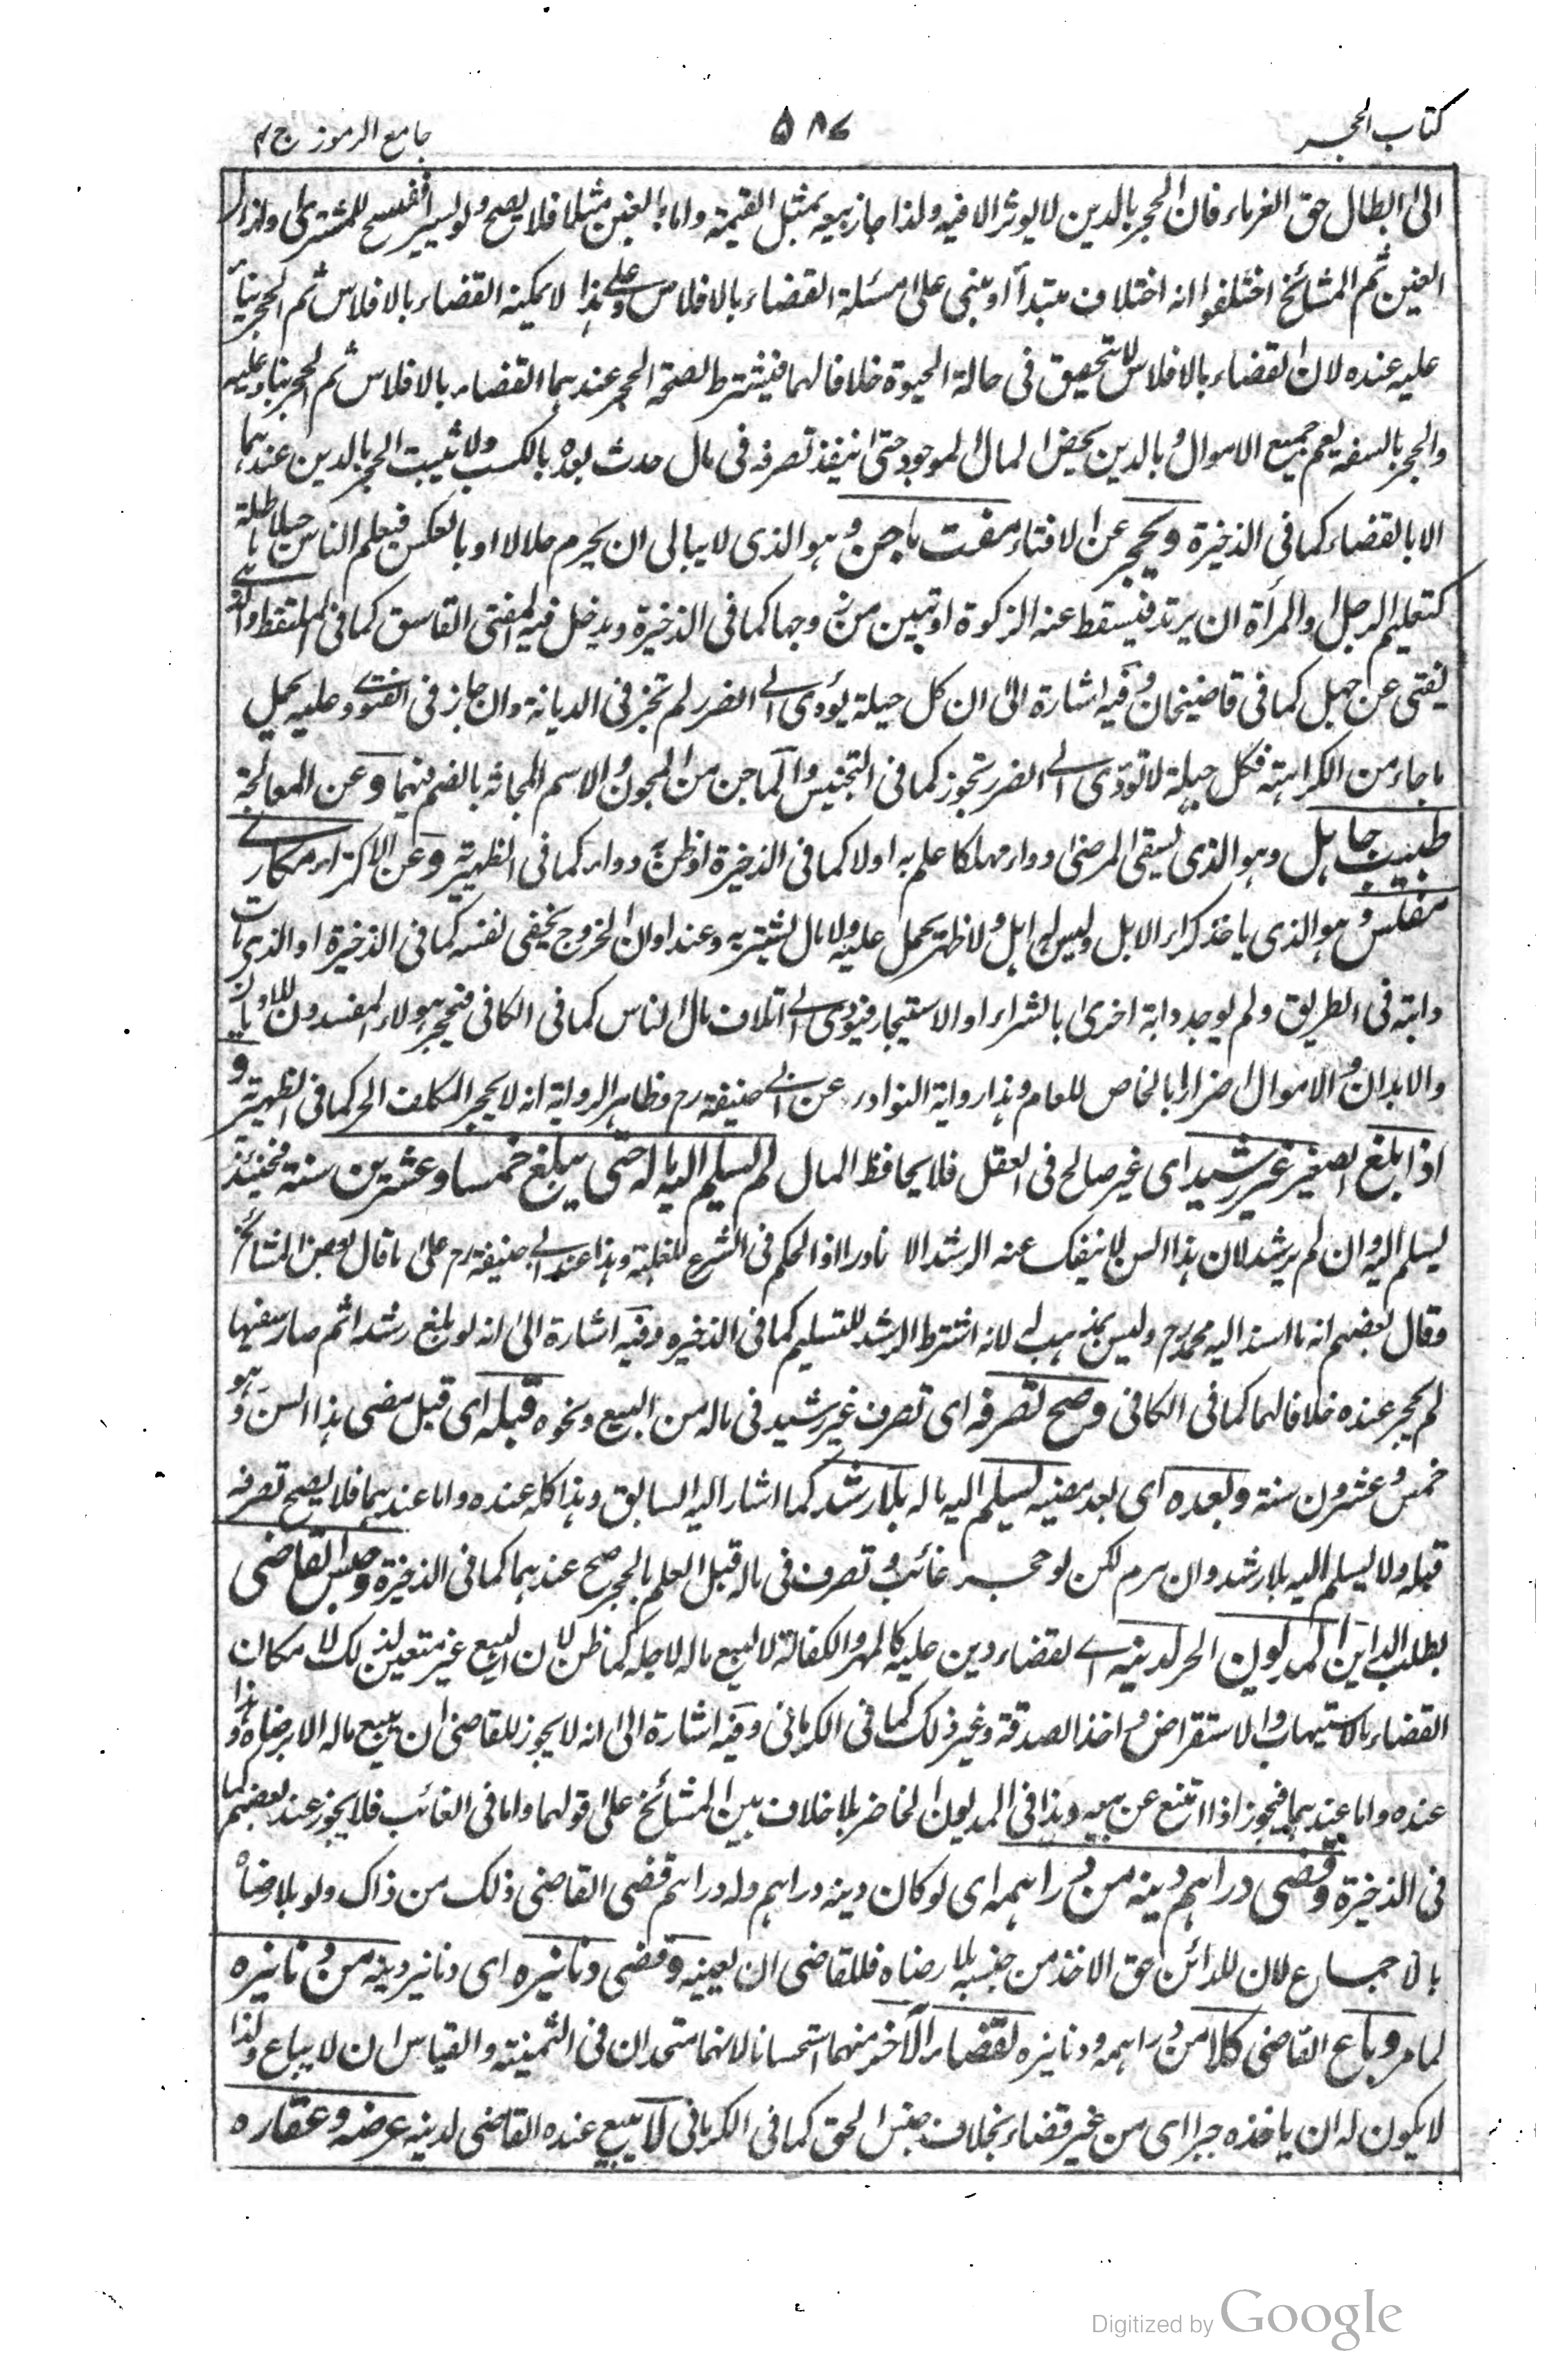 كتاب الحجر ٥٨٧ جامع الرموز ج ٢
الى ابطال حق الغرماء فان الحجر بالدين لا يؤثر الا فيه ولذا جاز بيعه بمثل القيمة واما بالغبن مثلا فلا يصح ولو يسيرا فيفسخ المشترى او ازال
الغبن ثم المشائخ اختلفوا انه اختلاف مبتدأ او مبنى على مسئلة القضاء بالافلاس وعلى هذا لا يمكنه القضاء بالافلاس ثم الحجر بناءً
عليه عنده لان القضاء بالافلاس لا يتحقق فى حالة الحيوة خلافا لهما فيشترط لصحة الحجر عندهما القضاء بالافلاس ثم الحجر بناء عليه
والحجر بالسفه يعم جميع الاموال وبالدين يخص المال الموجود حتى ينفذ تصرفه فى مال حدث بعده بالكسب ولا يثبت الحجر بالدين عندهما
الا بالقضاء كما فى الذخيرة ويحجر عن الافتاء مفت ماجن وهو الذى لا يبالى ان يحرم حلالا او بالعكس فيعلم الناس حيلا باطلة
كتعليم الرجل والمرأة ان يرتد فيسقط عنه الزكوة او تبين من زوجها كما فى الذخيرة ويدخل فيه المفتى الفاسق كما فى الملتقط والذى
يفتى عن جهل كما فى قاضيخان وفيه اشارة الى ان كل حيلة يؤدى الى الضرر لم تجز فى الديانة وان جاز فى الفتوى وعليه يحمل
ما جاء من الكراهة فكل حيلة لا تؤدى الى الضرر تجوز كما فى التجنيس والماجن من المجون والاسم المجانة بالضم فيهما وعن المعالجة
طبيب جاهل وهو الذى يسقى المرضى دواء مهلكا علم به اولا كما فى الذخيرة او ظن دواء كما فى الظهيرية وعن الاكتراء مكارى
مفلس وهو الذى ياخذ كراء الابل وليس له ابل ولا ظهر يحمل عليه ولا مال يشترى به وعند اوان الخروج يخفى نفسه كما فى الذخيرة او الذى مات
دابته فى الطريق ولم يوجد دابة اخرى بالشراء او الاستيجار فيؤدى الى اتلاف مال الناس كما فى الكافى فيحجر هولاء المفسدون للاديان
والابدان والاموال اضرارا بالخاص للعام وهذا رواية النوادر عن ابى حنيفة رح وظاهر الرواية انه لا يحجر المكلف الحر كما فى الظهيرية و
اذا بلغ الصغير غير رشيد اى غير صالح فى العقل فلا يحافظ المال لم يسلم اليه ماله حتى يبلغ خمسا وعشرين سنة فحينئذ
يسلم اليه وان لم يرشد لان هذا السن لا ينفك عنه الرشد الا نادرا اذ الحكم فى الشرع للغلبة وهذا عند ابى حنيفة رح على ما قال بعض المشائخ
وقال بعضهم انه ما اسند اليه محمد رح وليس بمذهب له لانه اشترط الرشد للتسليم كما فى الذخيرة وفيه اشارة الى انه لو بلغ رشدا ثم صار سفيها
لم يحجر عنده خلافا لهما كما فى الكافى وصح تصرفه اى تصرف غير رشيد فى ماله من البيع ونحوه قبله اى قبل مضى هذا السن وهو
خمس وعشرون سنة وبعده اى بعد مضيه يسلم اليه ماله بلا رشد كما اشار اليه السابق وهذا كله عنده واما عندهما فلا يصح تصرفه
قبله ولا يسلم اليه بلا رشد وان هرم لكن لو حجر غائب وتصرف فى ماله قبل العلم بالحجر صح عندهما كما فى الذخيرة وحبس القاضى
بطلب الداين المديون الحر لدينه اى لقضاء دين عليه كالمهر والكفالة لا لبيع ماله لاجله كما ظن لان البيع غير متعين لذلك لامكان
القضاء بالاستيهاب والاستقراض واخذ الصدقة وغير ذلك كما فى الكرمانى وفيه اشارة الى انه لا يجوز للقاضى ان يبيع ماله الا برضاه وهذا
عنده واما عندهما فيجوز اذا امتنع عن بيعه وهذا فى المديون الحاضر بلا خلاف بين المشائخ على قولهما واما فى الغائب فلا يجوز عند بعضهم كما
فى الذخيرة وقضى دراهم دينه من دراهمه اى لو كان دينه دراهم وله دراهم قضى القاضى ذلك من ذاك ولو بلا رضاه
بالاجماع لان للدائن حق الاخذ من جنسه بلا رضاه فللقاضى ان يعينه وقضى دنانيره اى دنانير دينه من دنانيره
لما مر وباع القاضى كلا من دراهمه ودنانيره لقضاء الآخر منهما استحسانا لانهما متحدان فى الثمنية والقياس ان لا يباع ولذا
لا يكون له ان ياخذه جبرا اى من غير قضاء بخلاف جنس الحق كما فى الكرمانى لا يبيع عنده القاضى لدينه عرضه وعقاره
Digitized by Google